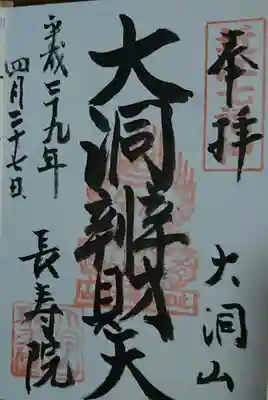 奉拝
大洞山
大洞辨財天
長寿院
平成二十九年
四月二十七日